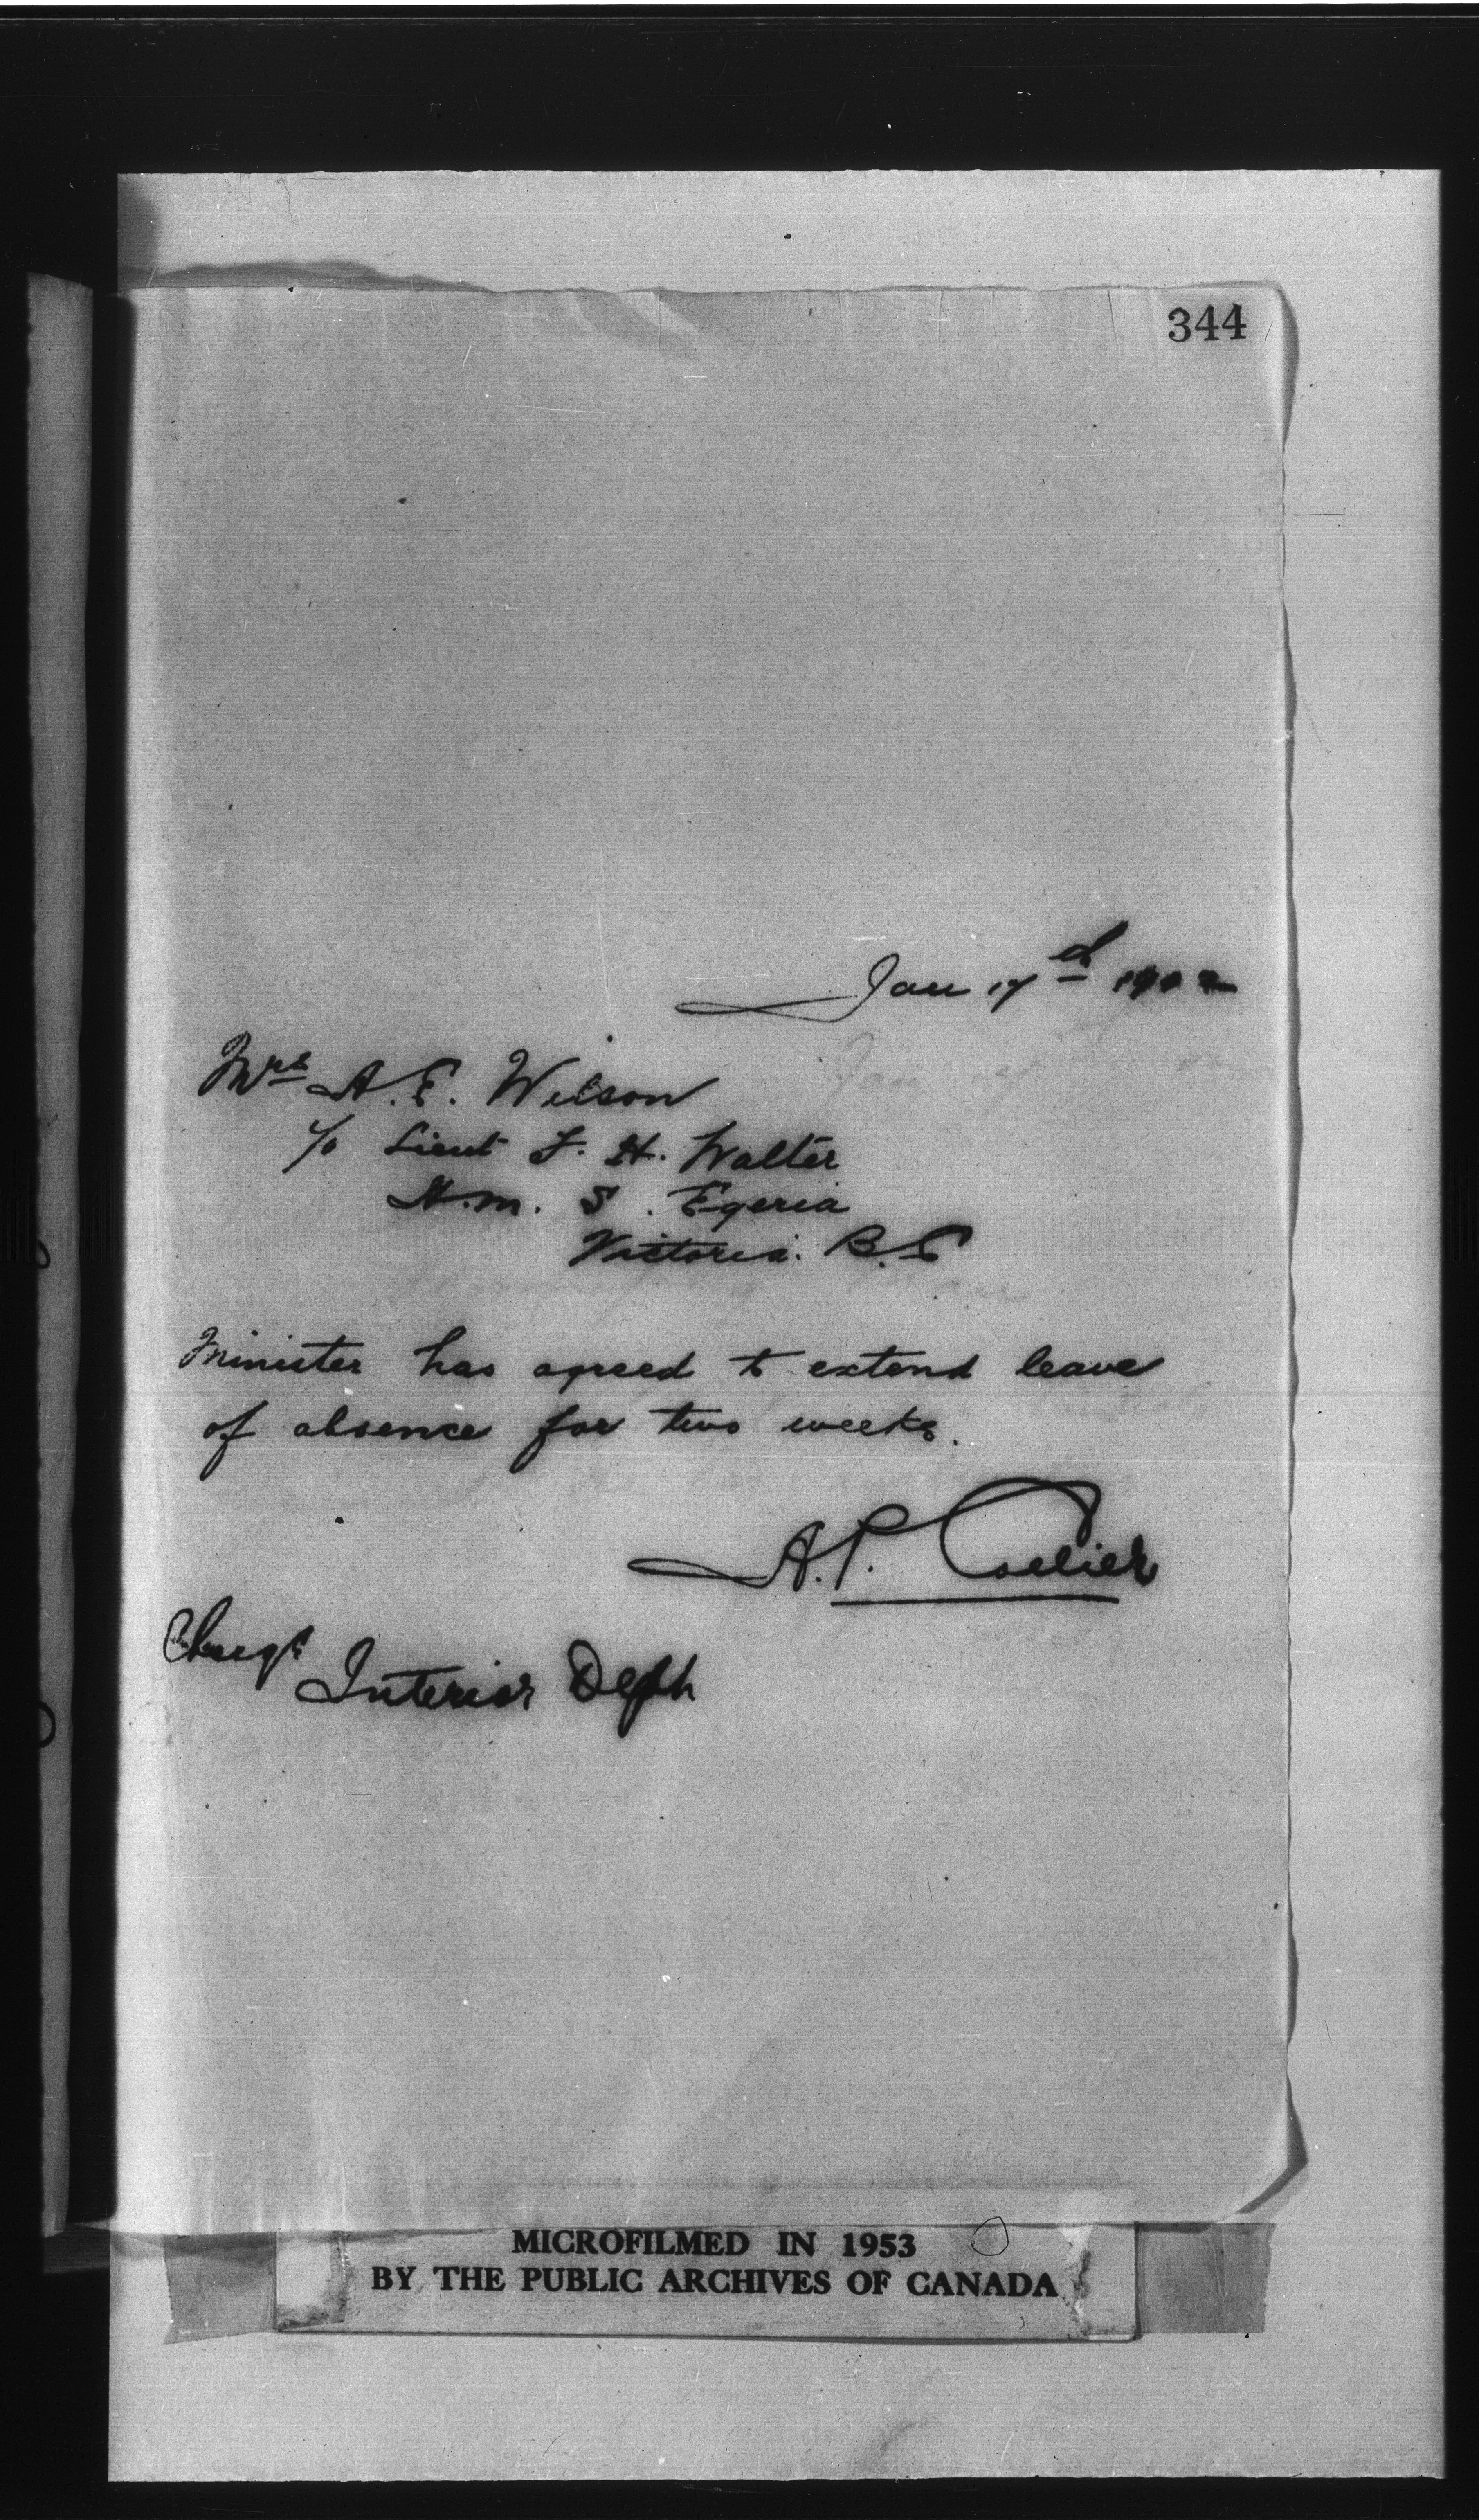 344
Jan 17th 1902
Mrs A. E. Wilson
c/o Lieut F. H. Walter
H. M. S. Egeria
Victoria. B.C
Minister has agreed to extend leave
of absence for two weeks.
A. P. Collier
Charge
Interior Dept
MICROFILMED IN 1953
BY THE PUBLIC ARCHIVES OF CANADA